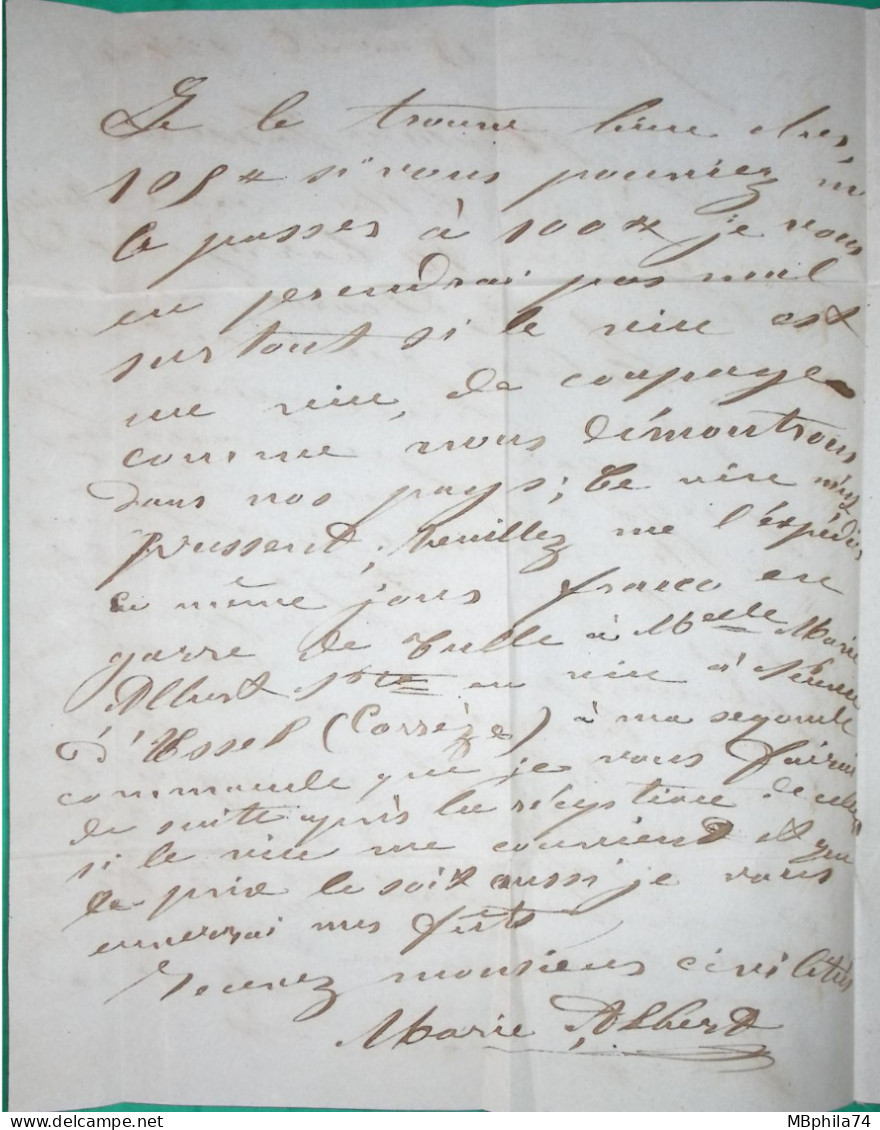 Je le trouve bien cher
108 * si vous pourriez m
le passer à 100 * je vous
en prendrai pas mal
surtout si le vin est
un vin, de coupage
comme nous démontrons
dans nos pays; Ce vin m'est
pressent, Veuillez me l'expédier
ce même jour franco en
garre de Tulle à Melle Marie
Albert Nte en vin à
d'Ussel (Corrèze) à ma segonde
commande que je vous fairai
de suite après la réception de celui
si le vin me convient et que
le prix le soit aussi je vous
enverrai mes futs
Recevez monsieur civilités
Marie Albert
MBphila74